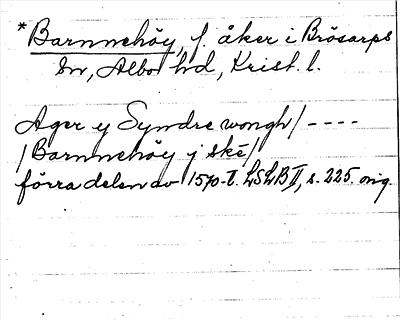 *Barnnehöy, f. åker i Brösarps
sn, Albo hd, Krist. l.
Ager y Syndre wongh/----
/Barnnehöy j ské/
förra delen av 1570-t. LSLB II, s. 225. orig.